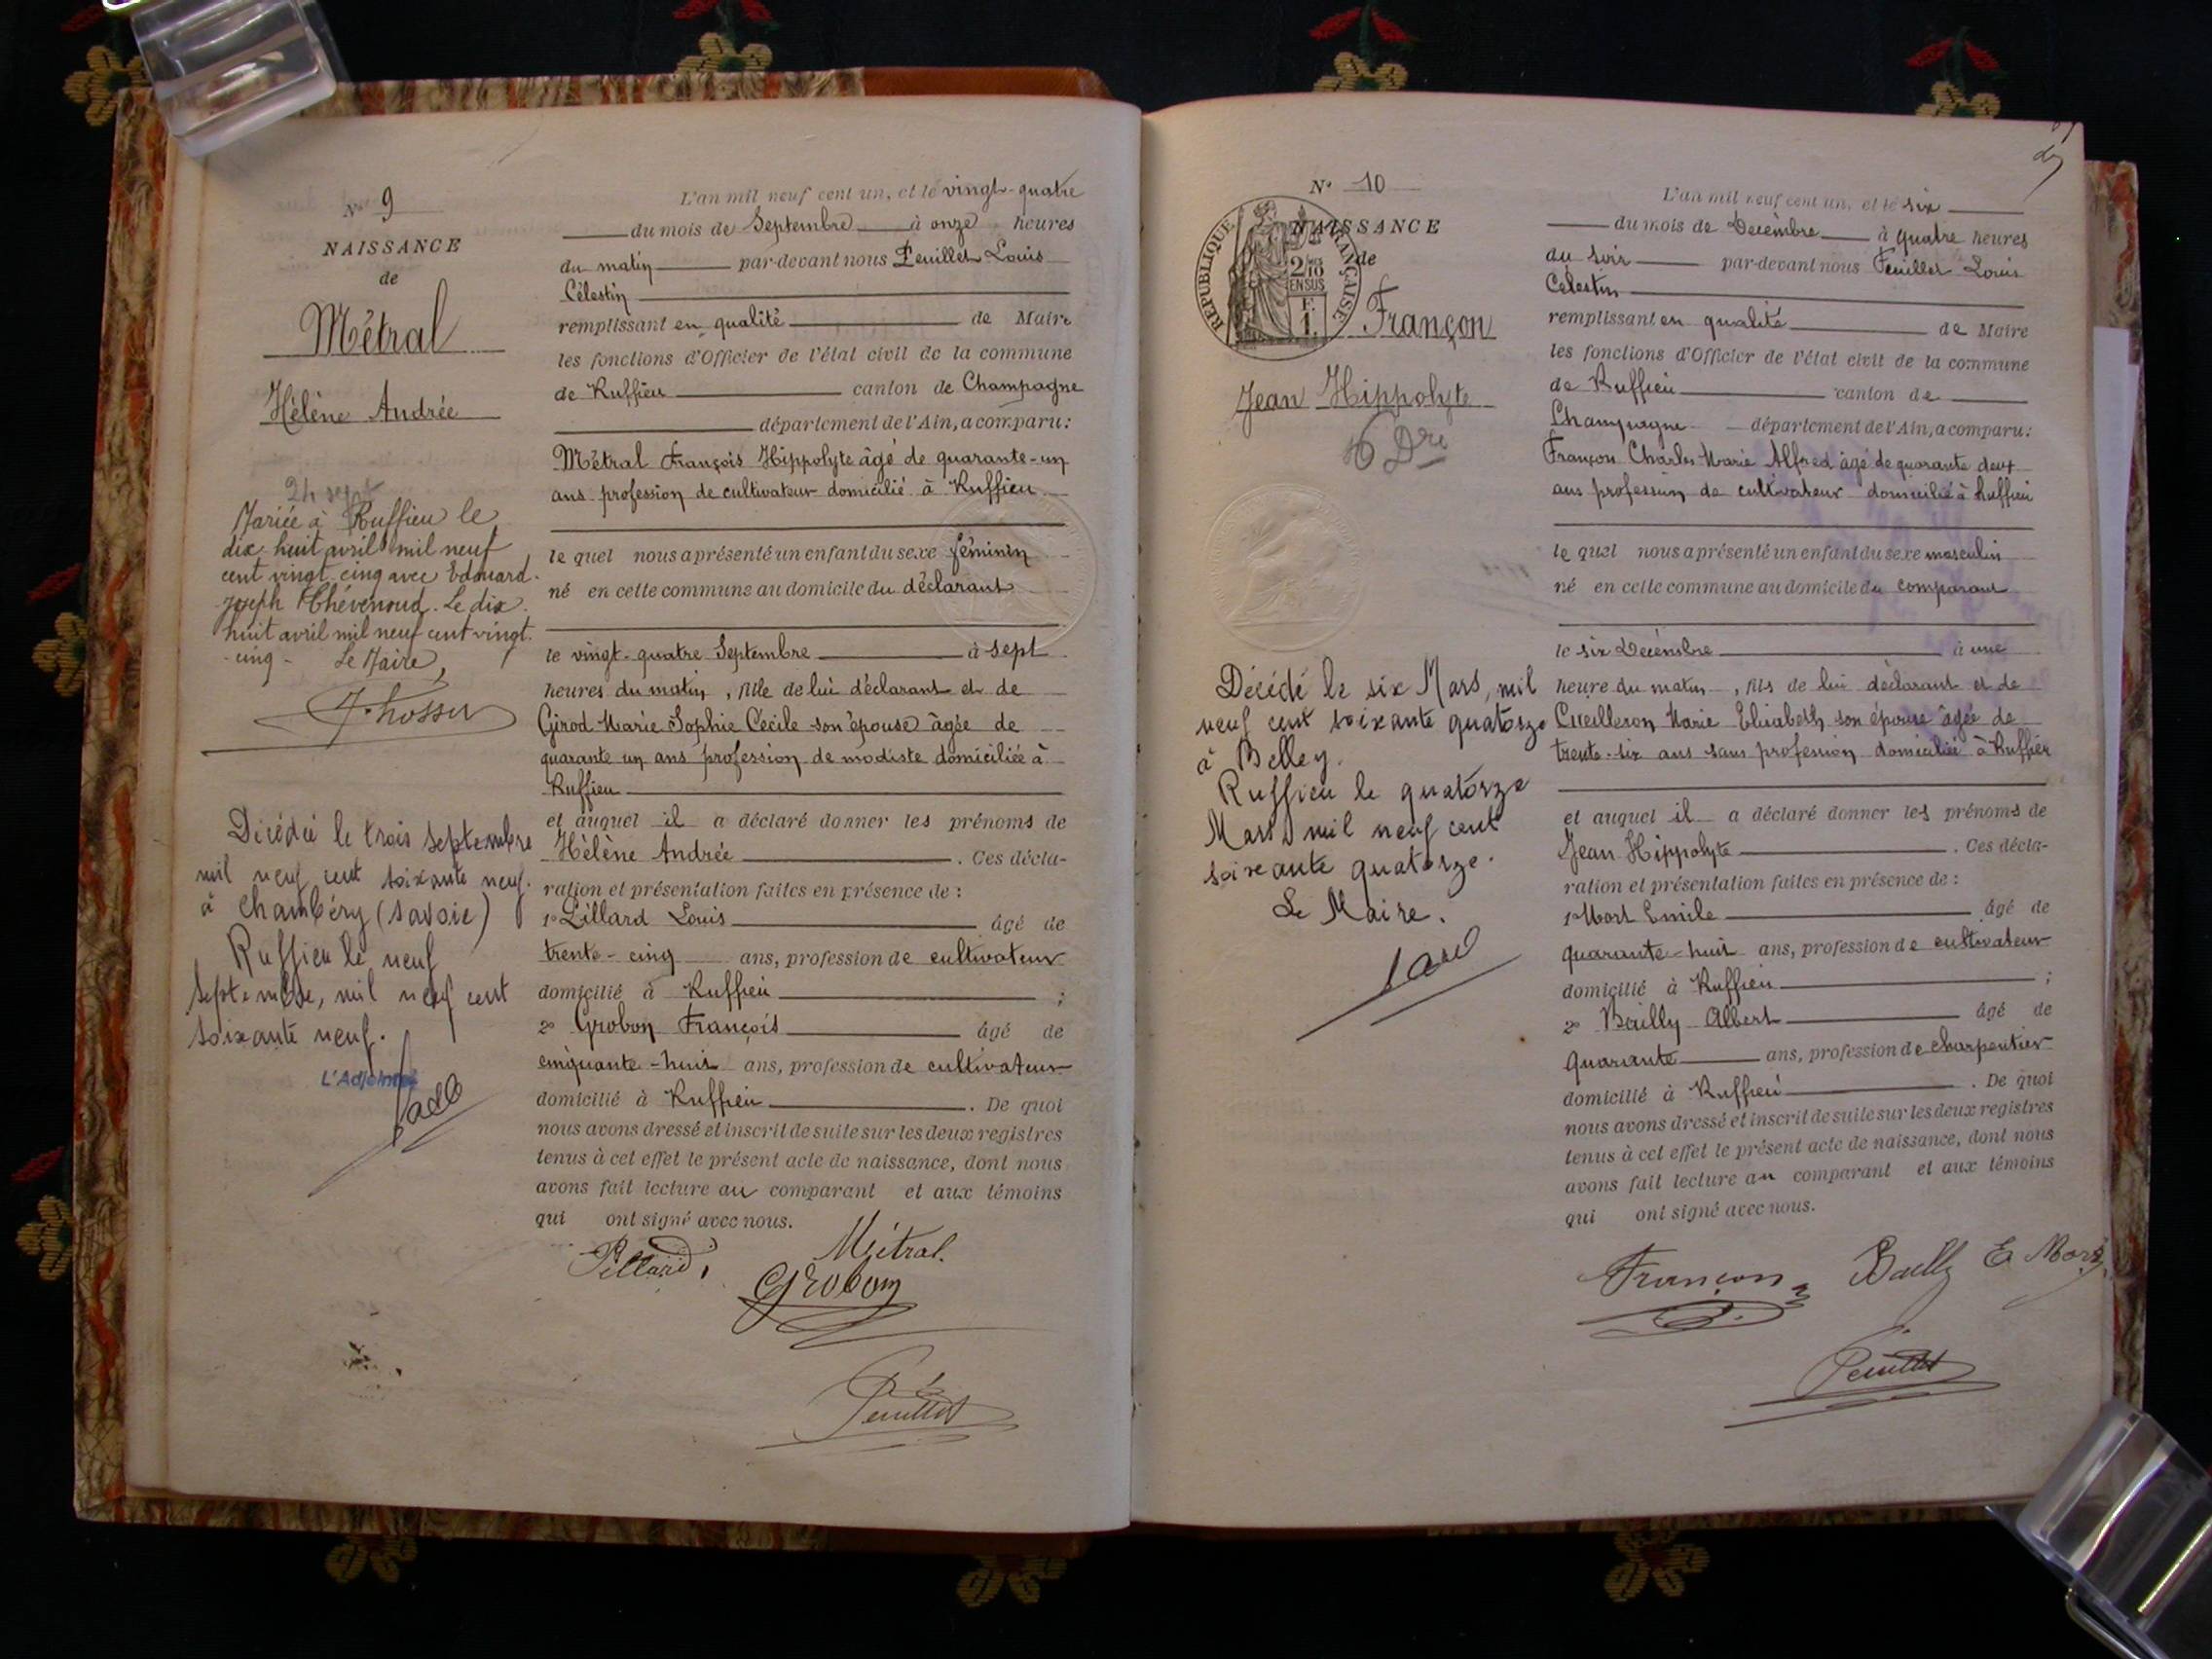 N° 9
NAISSANCE
de
Métral
Hélène Andrée
24 sept
Mariée à Ruffieu le
dix-huit avril mil neuf
cent vingt-cinq avec Edouard
Joseph Thévenoud. Le dix-
huit avril mil neuf cent vingt-
cinq - Le Maire,
Décédée le trois septembre
mil neuf cent soixante neuf.
à Chambéry (Savoie)
Ruffieu le neuf
septembre, mil neuf cent
soixante neuf.
L'Adjoint
L'an mil neuf cent un, et le vingt-quatre
du mois de Septembre à onze heures
du matin par-devant nous Feuillet Louis
Célestin
remplissant en qualité de Maire
les fonctions d'Officier de l'état civil de la commune
de Ruffieu canton de Champagne
département de l'Ain, a comparu:
Métral François Hippolyte âgé de quarante-un
ans profession de cultivateur domicilié à Ruffieu
le quel nous a présenté un enfant du sexe féminin
né en cette commune au domicile du déclarant
le vingt-quatre Septembre à sept
heures du matin, fille de lui déclarant et de
Girod Marie Sophie Cécile son épouse âgée de
quarante un ans profession de modiste domiciliée à
Ruffieu
et auquel il a déclaré donner les prénoms de
Hélène Andrée . Ces décla-
ration et présentation faites en présence de :
1° Lillard Louis âgé de
trente-cinq ans, profession de cultivateur
domicilié à Ruffieu ;
2° Grobon François âgé de
cinquante-huit ans, profession de cultivateur
domicilié à Ruffieu . De quoi
nous avons dressé et inscrit de suite sur les deux registres
tenus à cet effet le présent acte de naissance, dont nous
avons fait lecture au comparant et aux témoins
qui ont signé avec nous.
Métral.
Grobon
Feuillet
N° 10
NAISSANCE
de
RÉPUBLIQUE FRANÇAISE
2/10
EN SUS
F.
1.
Françon
Jean Hippolyte
6 Dre
Décédé le six Mars, mil
neuf cent soixante quatorze
à Belley.
Ruffieu le quatorze
Mars mil neuf cent
soixante quatorze.
Le Maire.
L'an mil neuf cent un, et le six
du mois de Decembre à quatre heures
du soir par-devant nous Feuillet Louis
Célestin
remplissant en qualité de Maire
les fonctions d'Officier de l'état civil de la commune
de Ruffieu canton de
Champagne département de l'Ain, a comparu:
Françon Charles Marie Alfred âgé de quarante deux
ans profession de cultivateur domicilié à Ruffieu
le quel nous a présenté un enfant du sexe masculin
né en cette commune au domicile du comparant
le six Decembre à une
heure du matin, fils de lui déclarant et de
Cueilleron Marie Elisabeth son épouse âgée de
trente-six ans sans profession domiciliée à Ruffieu
et auquel il a déclaré donner les prénoms de
Jean Hippolyte . Ces décla-
ration et présentation faites en présence de :
1° Mort Emile âgé de
quarante-huit ans, profession de cultivateur
domicilié à Ruffieu ;
2° Bailly Albert âgé de
quarante ans, profession de charpentier
domicilié à Ruffieu . De quoi
nous avons dressé et inscrit de suite sur les deux registres
tenus à cet effet le présent acte de naissance, dont nous
avons fait lecture au comparant et aux témoins
qui ont signé avec nous.
Françon Bailly E Mort
Feuillet